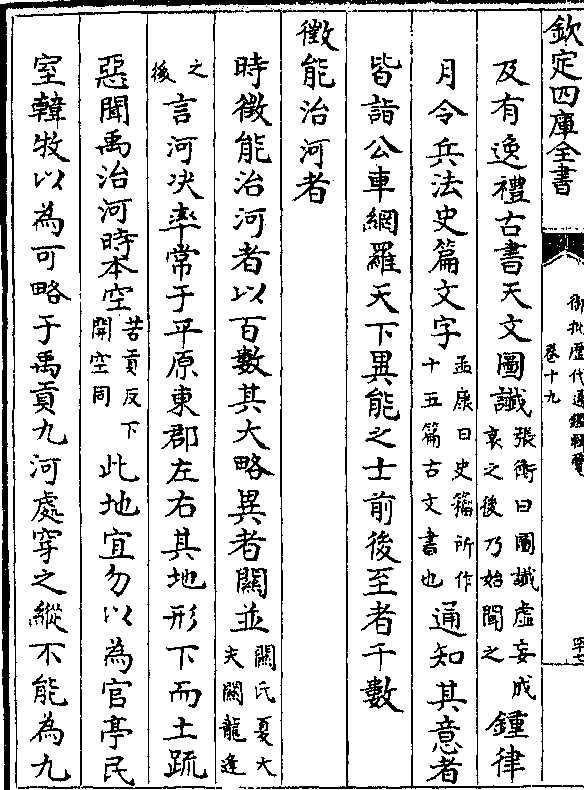 欽定四庫全書
御批歷代通鑑輯覽
卷十九
及有逸禮古書天文圖讖張衡曰圖讖虛妄成哀之後乃始聞之鍾律
月令兵法史篇文字孟康曰史籀所作十五篇古文書也通知其意者
皆詣公車網羅天下異能之士前後至者千數
徵能治河者
時徵能治河者以百數其大略異者關並關氏夏大夫關龍逢
之後言河决率常于平原東郡左右其地形下而土疏
惡聞禹治河時本空苦貢反下開空同此地宜勿以為官亭民
室韓牧以為可略于禹貢九河處穿之縱不能為九